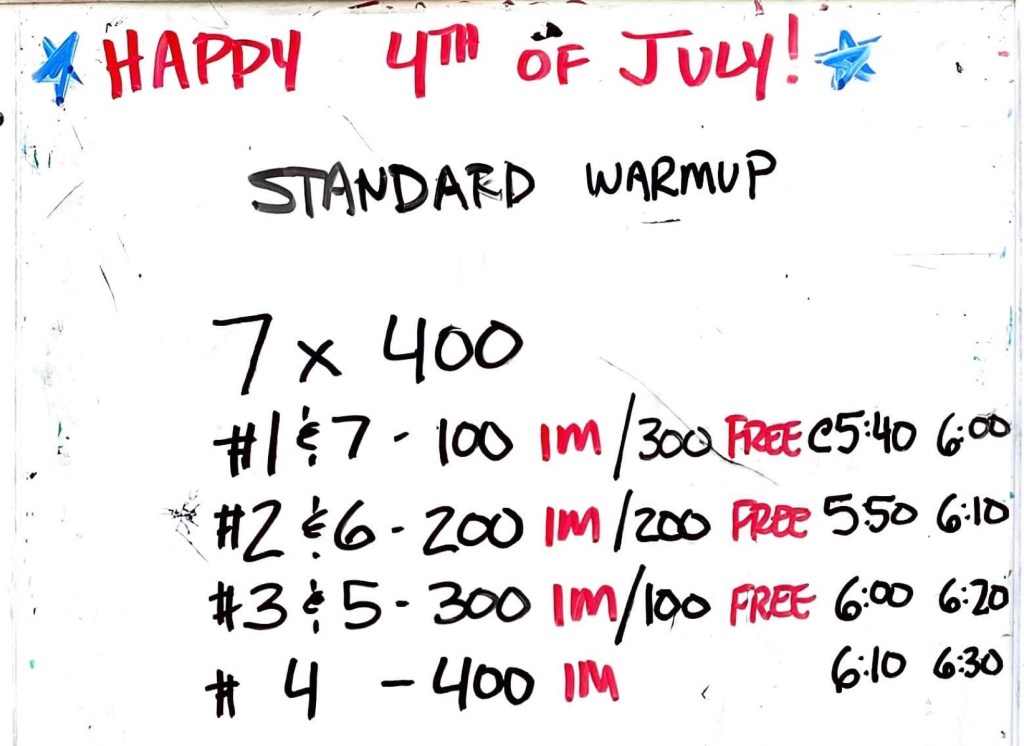 HAPPY 4TH OF JULY!
STANDARD WARMUP
7 x 400
#1 & 7 - 100 IM / 300 FREE @5:40 6:00
#2 & 6 - 200 IM / 200 FREE 5:50 6:10
#3 & 5 - 300 IM / 100 FREE 6:00 6:20
# 4 - 400 IM 6:10 6:30